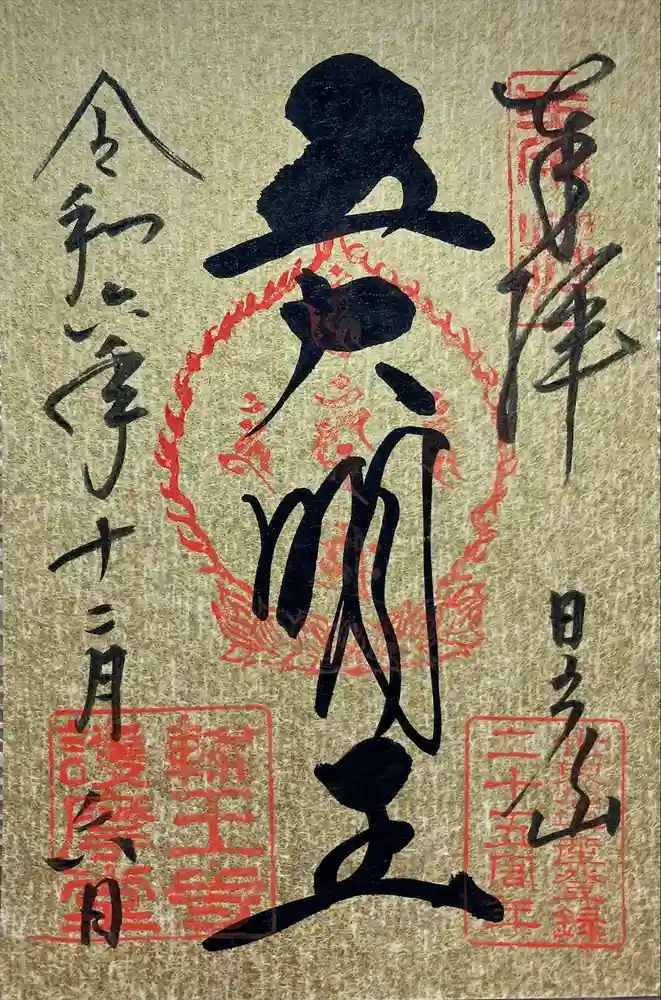 奉拝
日光山
世界遺産登録
二十五周年
五大明王
輪王寺
護摩堂
令和六年十二月六日